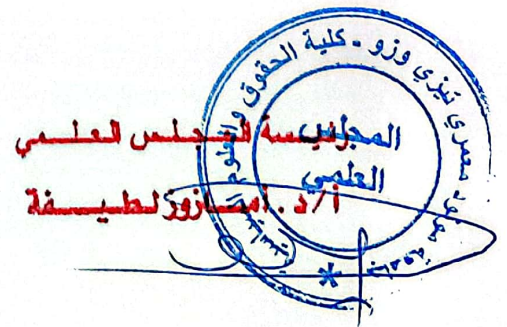 جامعة مولود معمري تيزي وزو - كلية الحقوق والعلوم
المجلس
العلمي
رئيسة المجلس العلمي
أ/د. أمـــازوز لطيـــفة